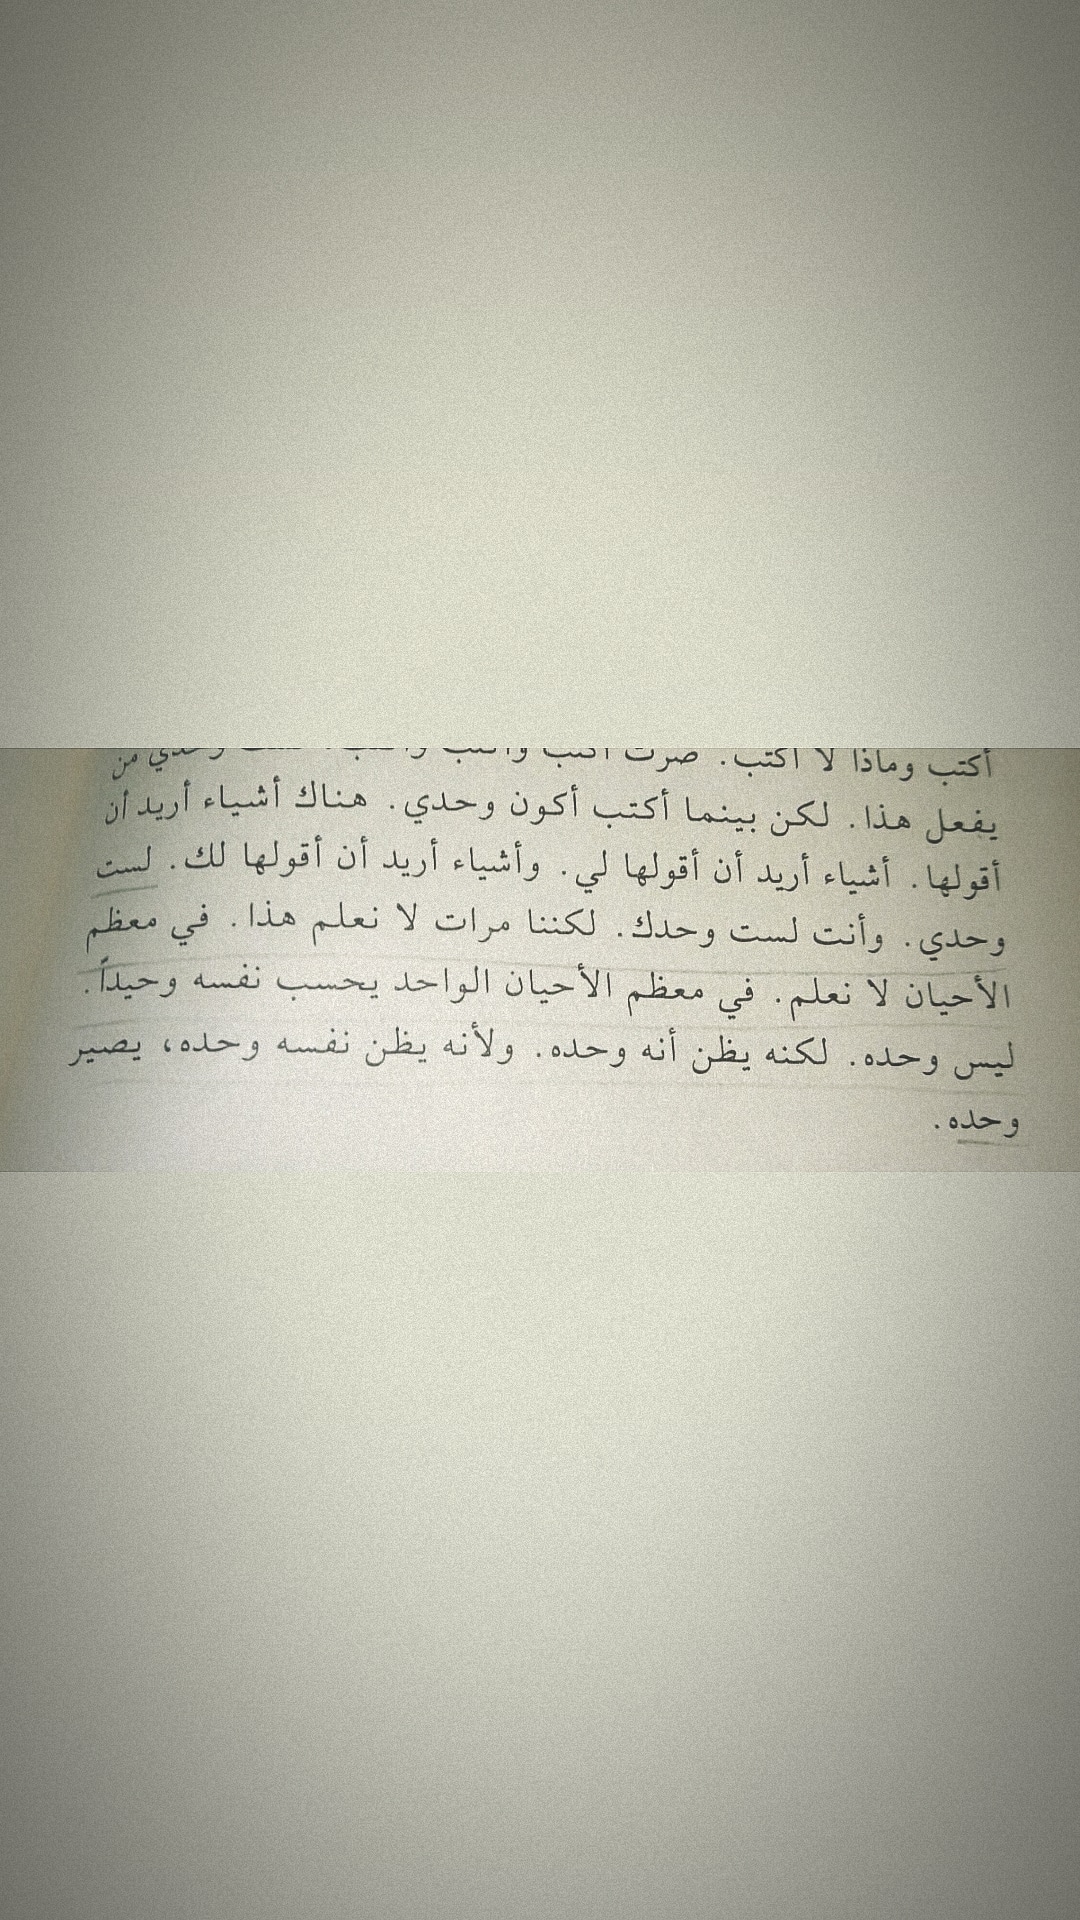 أكتب وماذا لا أكتب. صرت أكتب وأكتب وأكتب. لست وحدي من
يفعل هذا. لكن بينما أكتب أكون وحدي. هناك أشياء أريد أن
أقولها. أشياء أريد أن أقولها لي. وأشياء أريد أن أقولها لك. لست
وحدي. وأنت لست وحدك. لكننا مرات لا نعلم هذا. في معظم
الأحيان لا نعلم. في معظم الأحيان الواحد يحسب نفسه وحيداً.
ليس وحده. لكنه يظن أنه وحده. ولأنه يظن نفسه وحده، يصير
وحده.